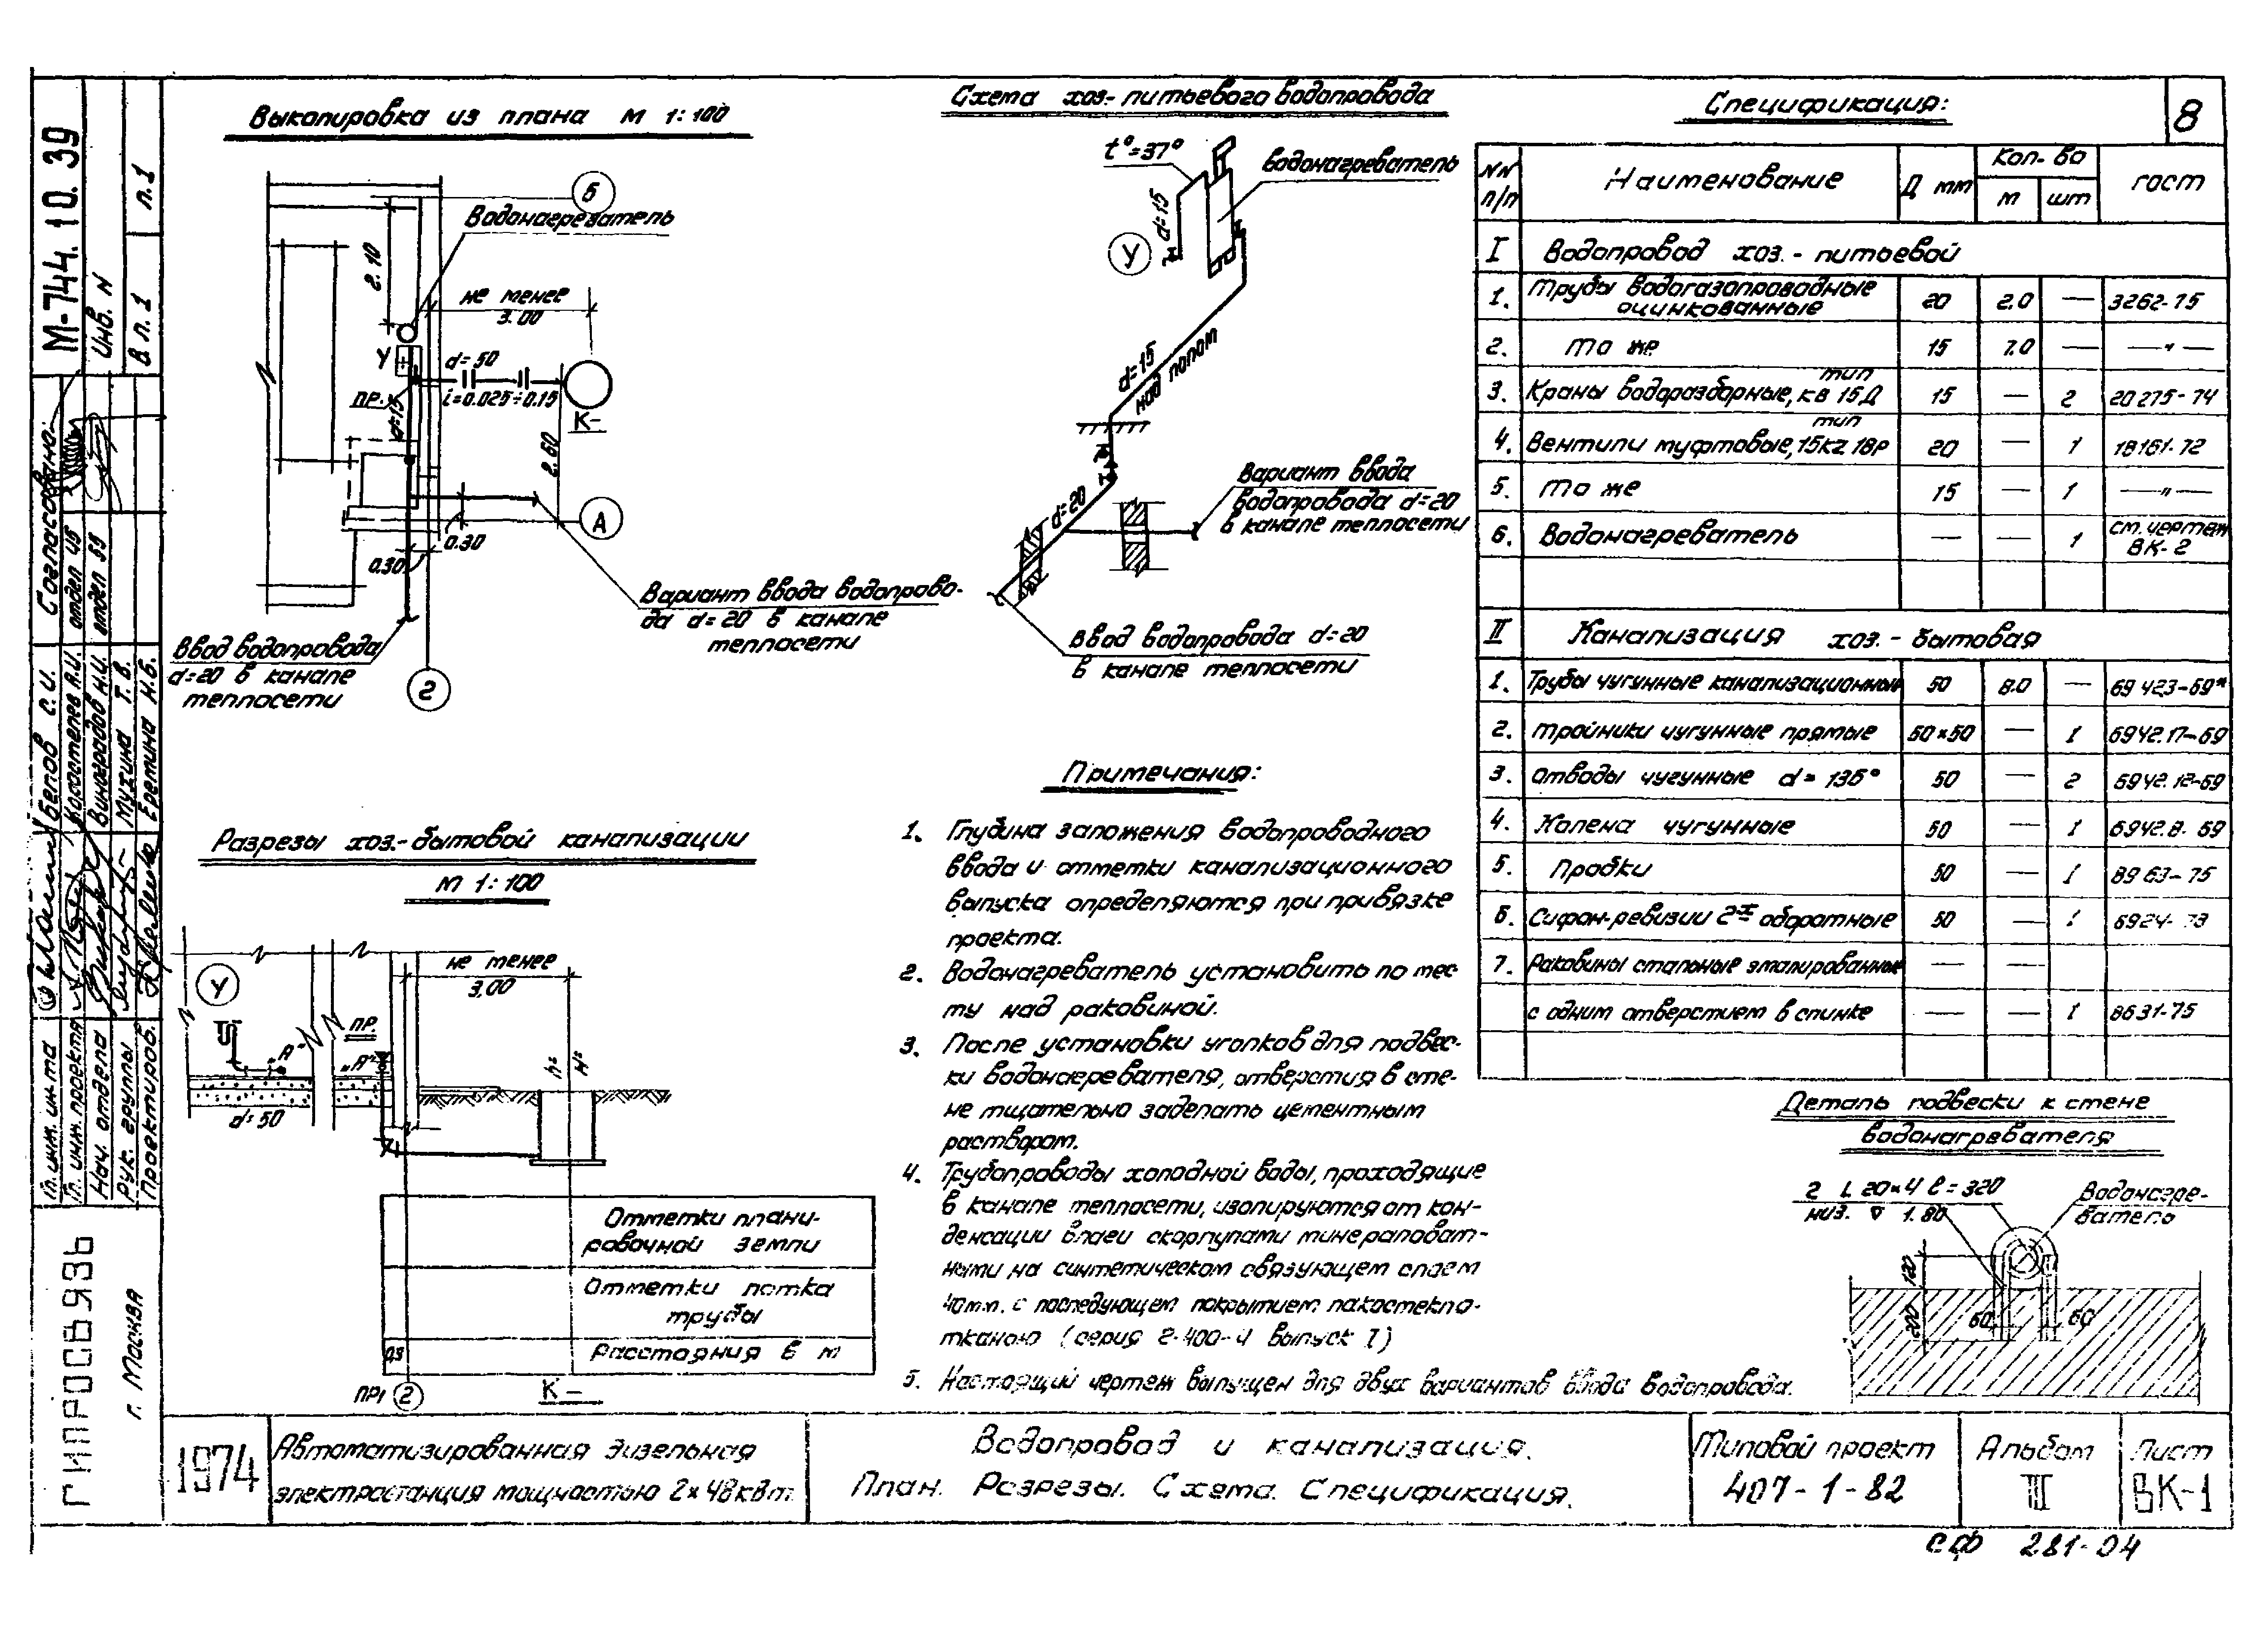 8
М-744. 10. 39
Инв. N
В л. 1
л. 1
Согласовано:
отдел 45
отдел 59
Белов С. И.
Виноградов Н.И.
Мухина Т. В.
Еремина Н.Б.
Гл. инж. ин-та
Гл. инж. проекта
Нач. отдела
Рук. группы
Проектиров.
ГИПРОСВЯЗЬ
г. Москва
Выкопировка из плана М 1:100
Б
Водонагреватель
2.10
не менее
3.00
У
d=50
ПР.
i=0.025÷0.15
К-
d=15
2.60
А
0.30
0.30
Вариант ввода водопрово-
да d=20 в канале
теплосети
Ввод водопровода
d=20 в канале
теплосети
2
Схема хоз.-питьевого водопровода
t°=37°
Водонагреватель
d=15
У
d=15
над полом
d=20
Вариант ввода
водопровода d=20
в канале теплосети
Ввод водопровода d=20
в канале теплосети
Разрезы хоз.-бытовой канализации
М 1:100
У
не менее
3,00
ПР.
„А"
„А"
d=50
Отметки плани-
ровочной земли
Отметки лотка
трубы
0,3
Расстояния в м
ПР1
2
К-
Примечания:
1. Глубина заложения водопроводного
ввода и отметки канализационного
выпуска определяются при привязке
проекта.
2. Водонагреватель установить по мес-
ту над раковиной.
3. После установки уголков для подвес-
ки водонагревателя, отверстия в сте-
не тщательно заделать цементным
раствором.
4. Трубопроводы холодной воды, проходящие
в канале теплосети, изолируются от кон-
денсации влаги скорлупами минераловат-
ными на синтетическом связующем слоем
40м.м. с последующем покрытием лакостекло-
тканью (серия 2-400-4 выпуск I)
5. Настоящий чертеж выпущен для двух вариантов ввода водопровода.
Спецификация:
NN п/п Наименование Д мм Кол-во м шт гост
I Водопровод хоз.-питьевой
1. Трубы водогазопроводные оцинкованные 20 2.0 — 3262-75
2. То же 15 7.0 — —"—
3. Краны водоразборные, тип кв 15Д 15 — 2 20275-74
4. Вентили муфтовые, тип 15кч 18р 20 — 1 18161-72
5. То же 15 — 1 —"—
6. Водонагреватель — — 1 см. чертеж ВК-2
II Канализация хоз.-бытовая
1. Трубы чугунные канализационные 50 8.0 — 6942.3-69*
2. Тройники чугунные прямые 50×50 — 1 6942.17-69
3. Отводы чугунные d=135° 50 — 2 6942.12-69
4. Колена чугунные 50 — 1 6942.8-69
5. Пробки 50 — 1 8963-75
6. Сифон-ревизии 2х оборотные 50 — 1 6924-73
7. Раковины стальные эмалированные — —
с одним отверстием в спинке — — 1 8631-75
Деталь подвески к стене
водонагревателя
2 L 20×4 l=320
низ. ▽ 1.80
Водонагре-
ватель
120
200
60
60
1974
Автоматизированная дизельная
электростанция мощностью 2×48квт.
Водопровод и канализация.
План. Разрезы. Схема. Спецификация.
Типовой проект
407-1-82
Альбом
III
Лист
ВК-1
СФ 281-04